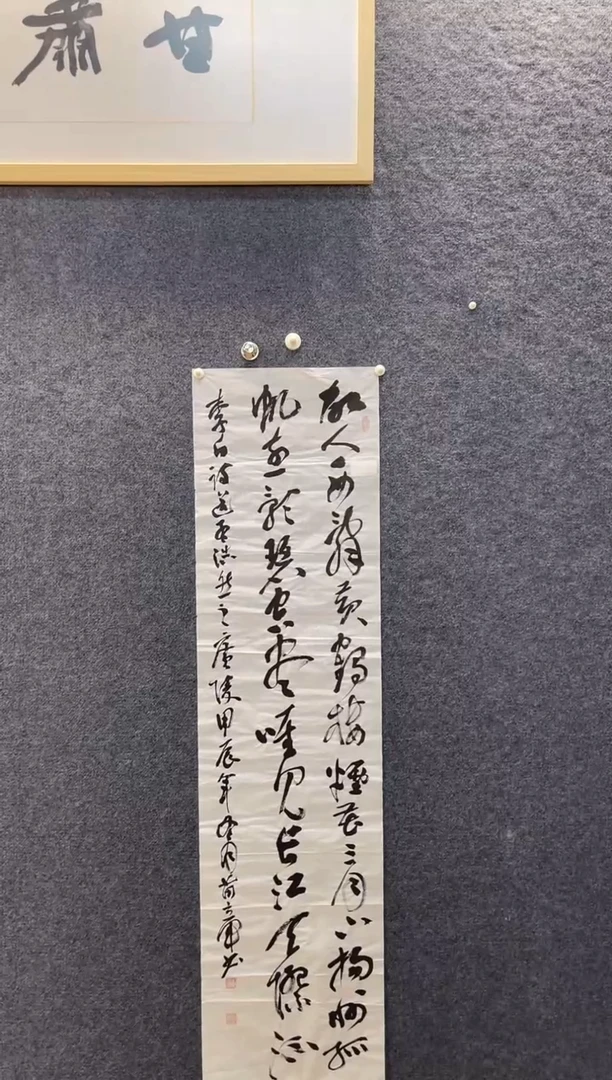 甘肅
故人西辭黃鶴樓煙花三月下揚州孤
帆遠影碧空盡唯見長江天際流
李白詩送孟浩然之廣陵甲辰年冬月